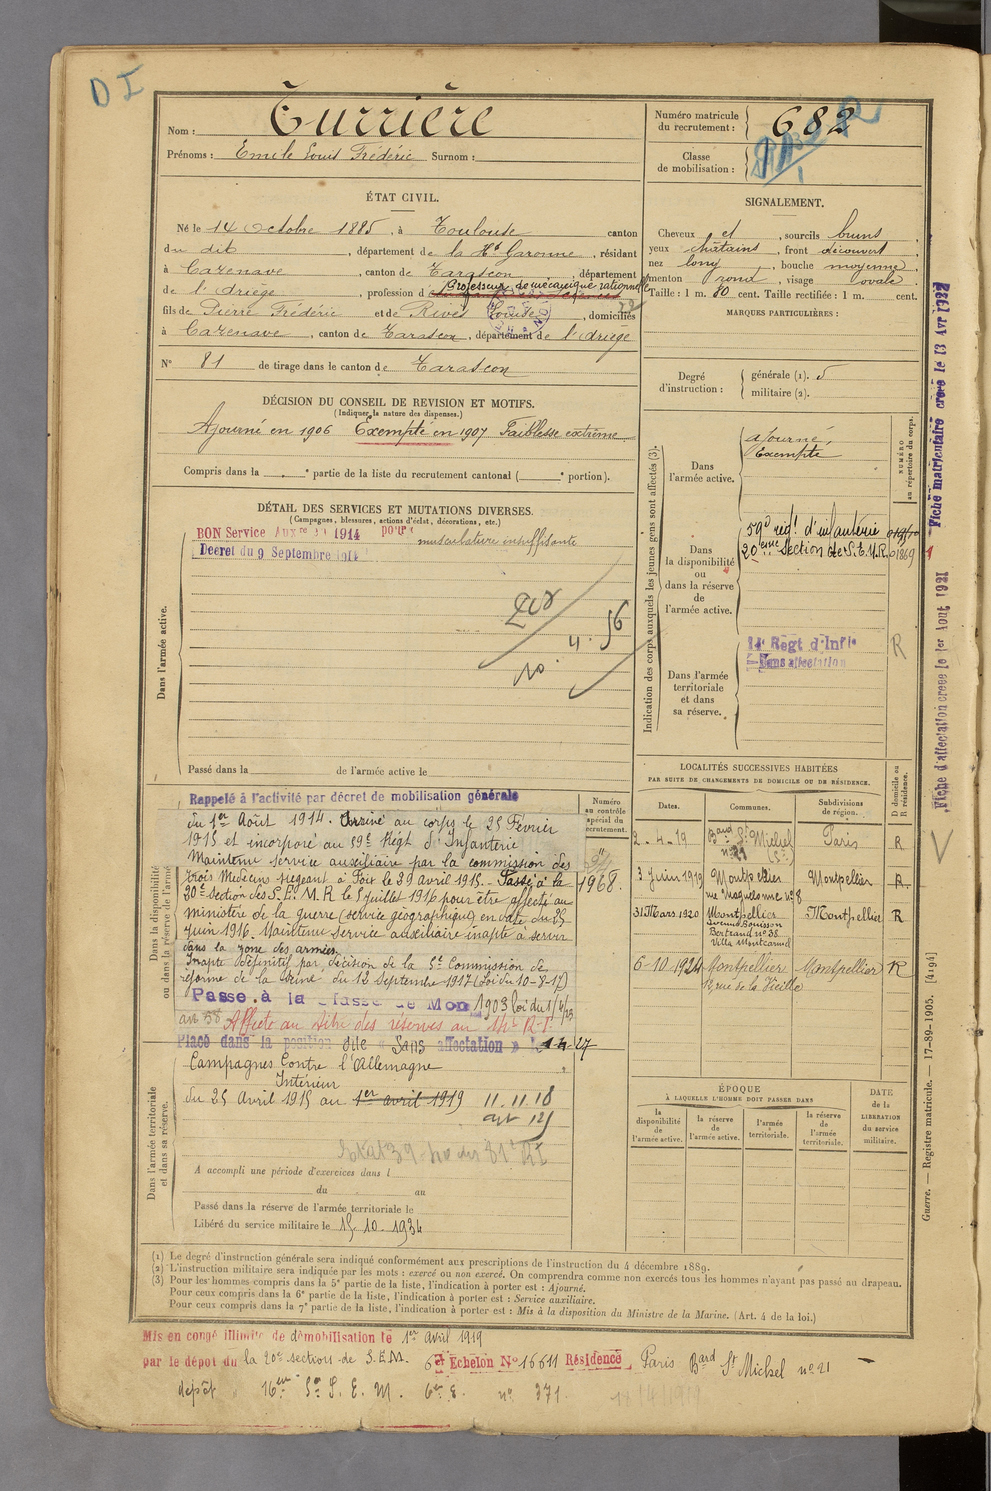 D I
Nom : Turrière
Prénoms : Emile Louis Frédéric Surnom :
Numéro matricule du recrutement : 682
Classe de mobilisation :
ÉTAT CIVIL.
Né le 14 Octobre 1885, à Toulouse canton
du dit, département de la Hte Garonne, résidant
à Cazenave, canton de Tarascon, département
Professeur de mécanique rationnelle
de l'Ariège, profession de
fils de Pierre Frédéric et de Rives Louise, domiciliés
à Cazenave, canton de Tarascon, département de l'Ariège
N° 81 de tirage dans le canton de Tarascon
SIGNALEMENT.
Cheveux et, sourcils bruns,
yeux chatains, front découvert,
nez long, bouche moyenne,
menton rond, visage ovale.
Taille : 1 m. 80 cent. Taille rectifiée : 1 m. cent.
MARQUES PARTICULIÈRES :
Degré d'instruction : générale (1). 5
militaire (2).
DÉCISION DU CONSEIL DE REVISION ET MOTIFS.
(Indiquer la nature des dispenses.)
Ajourné en 1906 Exempté en 1907 Faiblesse extrême
Compris dans la partie de la liste du recrutement cantonal ( portion).
DÉTAIL DES SERVICES ET MUTATIONS DIVERSES.
(Campagnes, blessures, actions d'éclat, décorations, etc.)
Dans l'armée active.
BON Service Auxre 1914 pour musculature insuffisante
Décret du 9 Septembre 1914
4.56
Passé dans la de l'armée active le
Indication des corps auxquels les jeunes gens sont affectés (3).
NUMÉRO au répertoire du corps.
Dans l'armée active.
Ajourné,
Exempté
Dans la disponibilité ou dans la réserve de l'armée active.
59e régt d'infanterie
20ème Section de S.E.M.R. 01869
Dans l'armée territoriale et dans sa réserve.
14e Regt d'Infie
Sans affectation
R
Fiche matriculaire créée le 13 Avr 1932
Fiche d'affectation créée le 1er Aout 1931
Dans la disponibilité ou dans la réserve de l'armée active.
Numéro au contrôle spécial du recrutement.
Rappelé à l'activité par décret de mobilisation générale
du 1er Août 1914. Arrivé au corps le 25 Février
1915 et incorporé au 59e Régt d'Infanterie
Maintenu service auxiliaire par la commission des
trois Médecins siégeant à Foix le 29 avril 1915. Passé à la 1968.
20e section des S.E.M.R le 5 juillet 1916 pour être affecté au
ministère de la guerre (service géographique) en date du 25
juin 1916. Maintenu service auxiliaire inapte à servir
dans la zone des armées.
Inapte définitif par décision de la 5e Commission de
réforme de la Seine du 12 Septembre 1917 (Loi du 10-8-17)
Passé à la classe de Mob 1903 loi du
art 58 Affecté au titre des réserves au 14e R.I.
Placé dans la position dite « Sans affectation » le 1-4-27
Dans l'armée territoriale et dans sa réserve.
Campagnes Contre l'Allemagne
Intérieur
du 25 Avril 1915 au 1er avril 1919 11.11.18
A accompli une période d'exercices dans l
du au
Passé dans la réserve de l'armée territoriale le
Libéré du service militaire le 15.10.1934
LOCALITÉS SUCCESSIVES HABITÉES
PAR SUITE DE CHANGEMENTS DE DOMICILE OU DE RÉSIDENCE.
Dates. Communes. Subdivisions de région. D domicile ou R résidence.
2-4-19 Baud St Michel n° 21 Paris R
3 Juin 1919 Montpellier rue Maguelonne n° 8 Montpellier R
31 Mars 1920 Montpellier Avenue Bouisson Bertrand n° 38 Villa Montcamel Montpellier R
6-10-1924 Montpellier 12, rue de la Vieille Montpellier R
ÉPOQUE
À LAQUELLE L'HOMME DOIT PASSER DANS
la disponibilité de l'armée active. la réserve de l'armée active. l'armée territoriale. la réserve de l'armée territoriale.
DATE de la LIBÉRATION du service militaire.
Guerre. — Registre matricule. — 17-89-1905. [4194]
(1) Le degré d'instruction générale sera indiqué conformément aux prescriptions de l'instruction du 4 décembre 1889.
(2) L'instruction militaire sera indiquée par les mots : exercé ou non exercé. On comprendra comme non exercés tous les hommes n'ayant pas passé au drapeau.
(3) Pour les hommes compris dans la 5e partie de la liste, l'indication à porter est : Ajourné.
Pour ceux compris dans la 6e partie de la liste, l'indication à porter est : Service auxiliaire.
Pour ceux compris dans la 7e partie de la liste, l'indication à porter est : Mis à la disposition du Ministre de la Marine. (Art. 4 de la loi.)
Mis en congé illimité de démobilisation le 1er Avril 1919
par le dépôt du la 20e section de S.E.M. 6e Echelon N° 16611 Résidence Paris Bard St Michel n° 21
dépôt 16em Son S.E.M. 6e E. n° 371